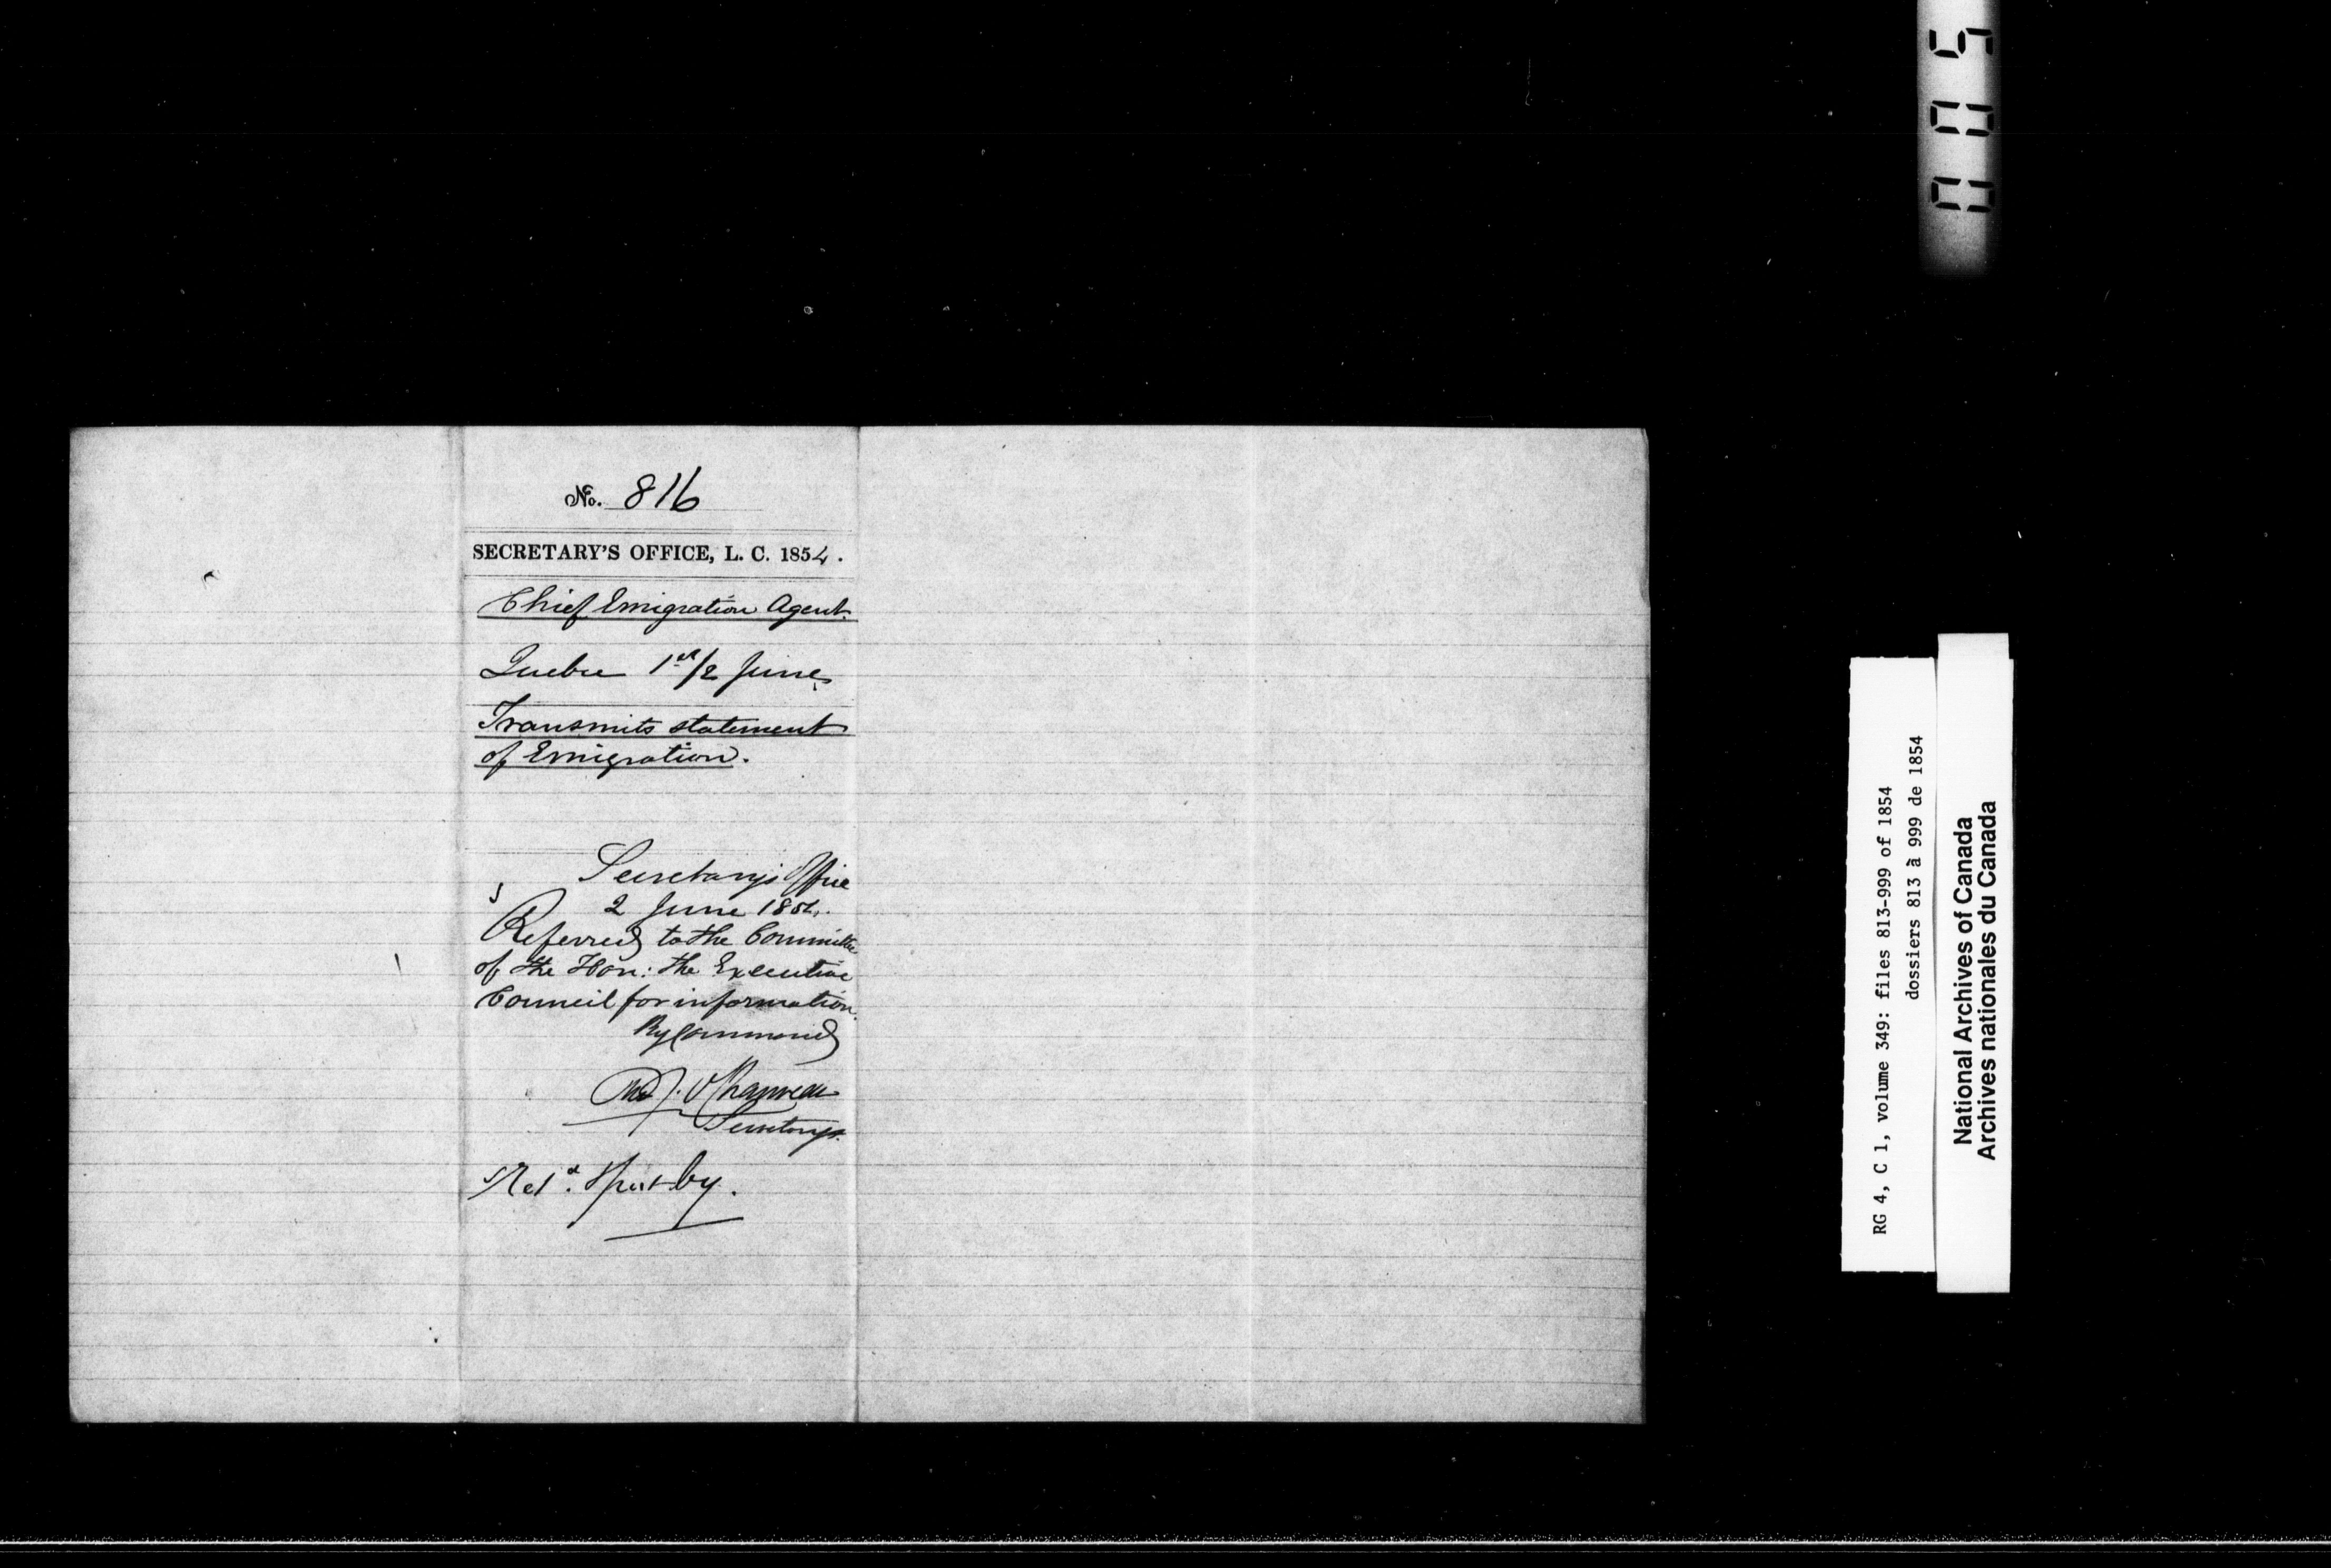 No. 816
SECRETARY'S OFFICE, L. C. 1854.
Chief Emigration Agent.
Quebec 1st/2 June
Transmits statement
of Emigration.
Secretary's Office
2 June 1854.
Referred to the Committee
of the Hon: the Executive
Council for information.
By Command
J. O Chauveau
Secretary.
by.
005
RG 4, C 1, volume 349: files 813-999 of 1854
dossiers 813 à 999 de 1854
National Archives of Canada
Archives nationales du Canada